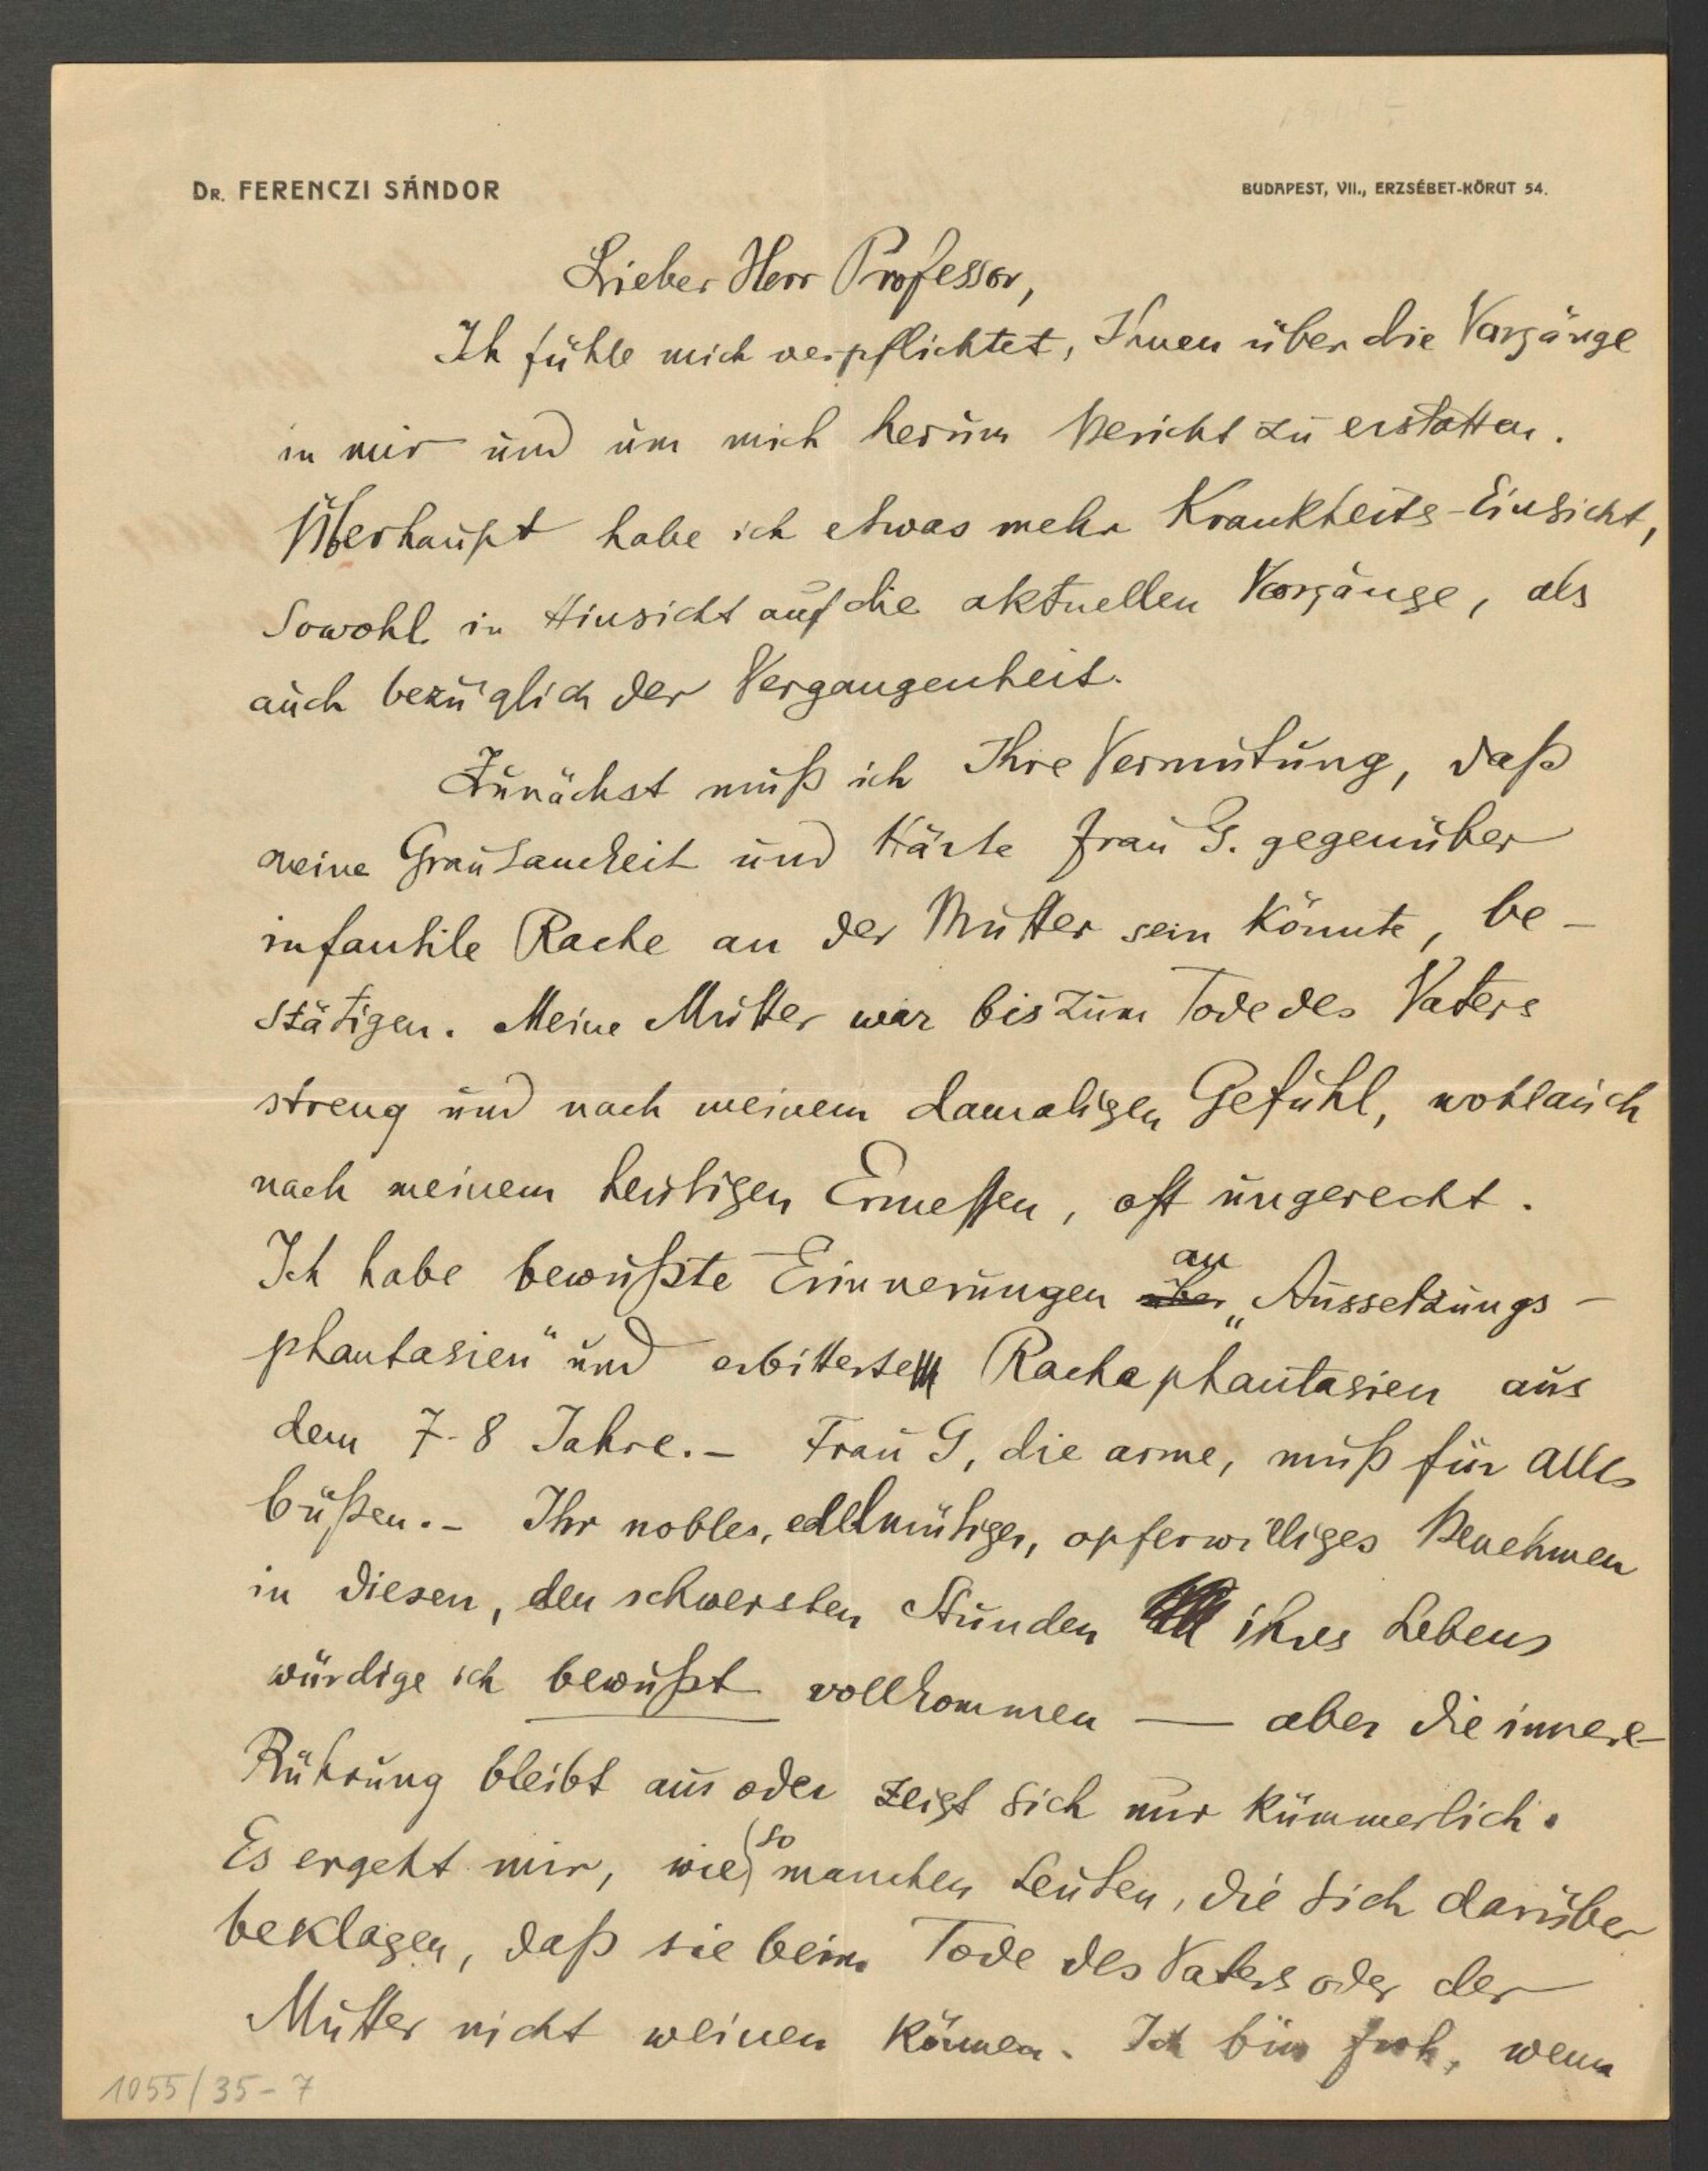 DR. FERENCZI SÁNDOR
BUDAPEST, VII., ERZSÉBET-KÖRUT 54.
Lieber Herr Professor,
Ich fühle mich verpflichtet, Ihnen über die Vorgänge
in mir und um mich herum Bericht zu erstatten.
Überhaupt habe ich etwas mehr Krankheits-Einsicht,
sowohl in Hinsicht auf die aktuellen Vorgänge, als
auch bezüglich der Vergangenheit.
Zunächst muß ich Ihre Vermutung, daß
meine Grausamkeit und Härte Frau G. gegenüber
infantile Rache an der Mutter sein könnte, be-
stätigen. Meine Mutter war bis zum Tode des Vaters
streng und nach meinem damaligen Gefühl, wohl auch
nach meinem heutigen Ermessen, oft ungerecht.
Ich habe bewußte Erinnerungen an „Aussetzungs-
phantasien" und erbitterte Rachephantasien aus
dem 7-8 Jahre. – Frau G, die arme, muß für alles
büßen. – Ihr nobles, edelmütiges, opferwilliges Benehmen
in diesen, den schwersten Stunden ihres Lebens
würdige ich bewußt vollkommen — aber die innere
Rührung bleibt aus oder zeigt sich nur kümmerlich.
Es ergeht mir, wie so manchen Leuten, die sich darüber
beklagen, daß sie beim Tode des Vaters oder der
Mutter nicht weinen können. Ich bin froh, wenn
1055/35-7